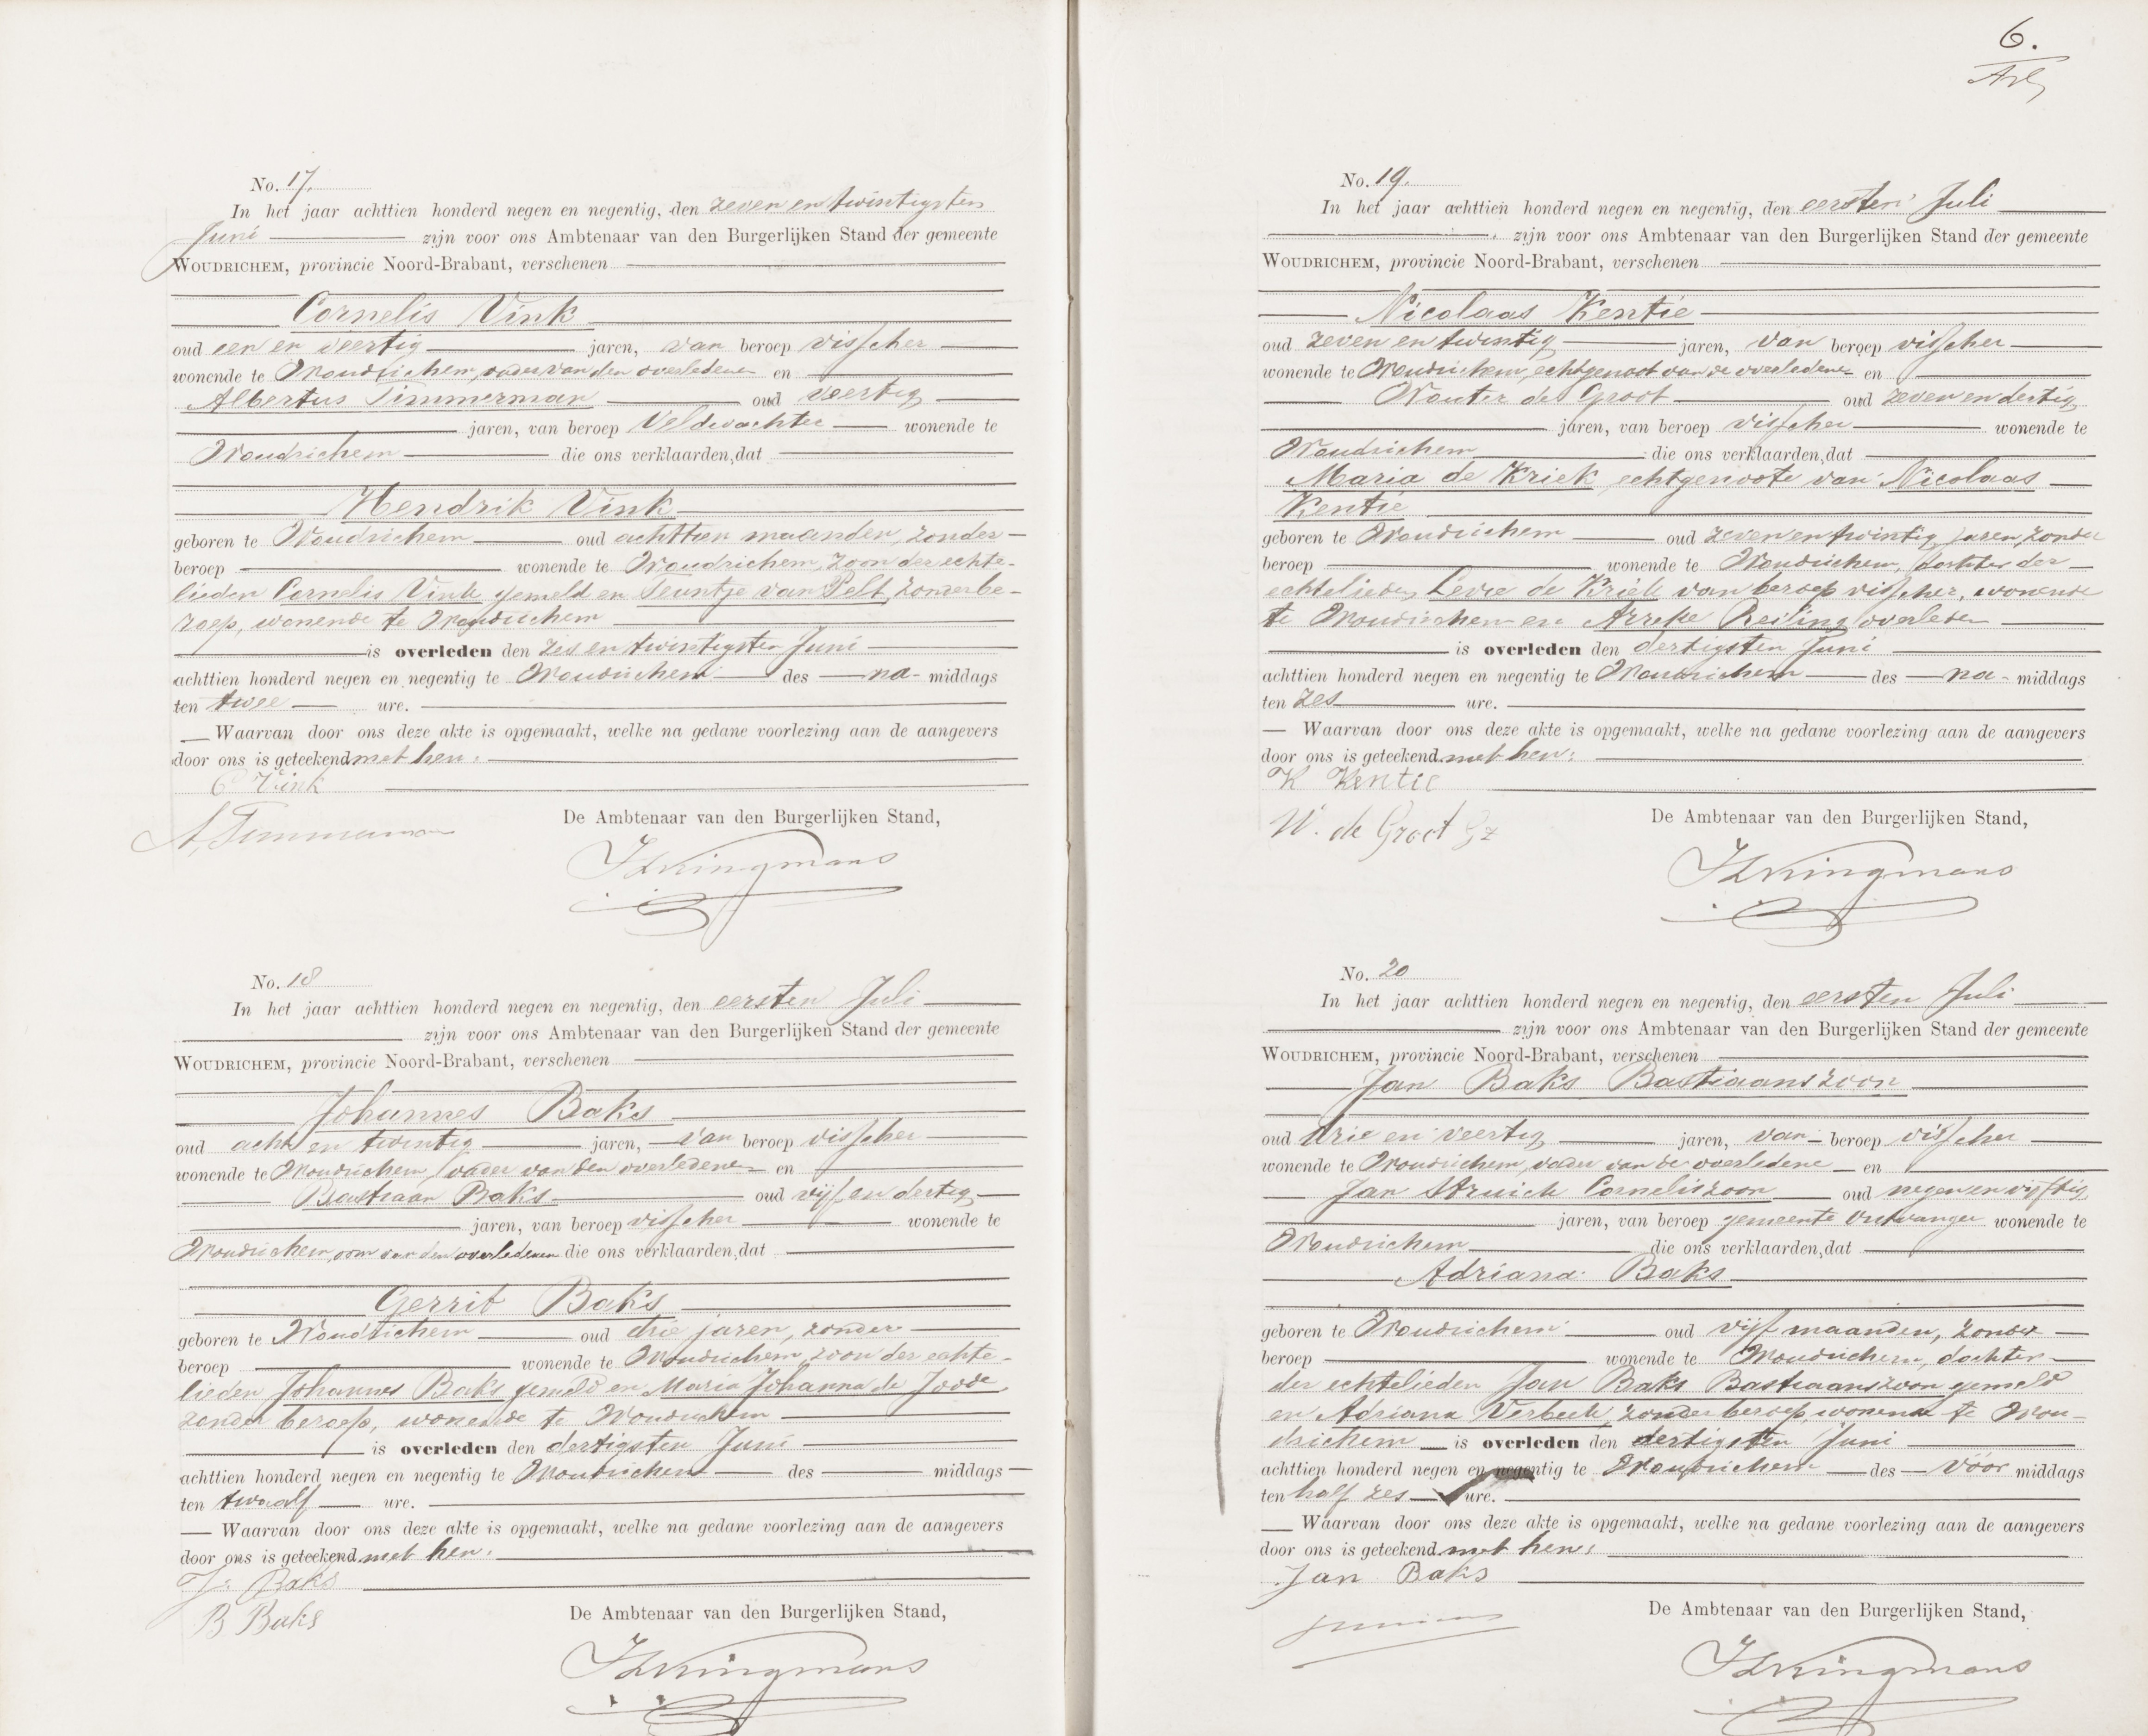 No. 17.
In het jaar achttien honderd negen en negentig, den zeven en twintigsten
Juni zijn voor ons Ambtenaar van den Burgerlijken Stand der gemeente
WOUDRICHEM, provincie Noord-Brabant, verschenen
Cornelis Vink
oud een en veertig jaren, van beroep visscher
wonende te Woudrichem, vader van den overledene en
Albertus Timmerman oud veertig
jaren, van beroep Veldwachter wonende te
Woudrichem die ons verklaarden, dat
Hendrik Vink
geboren te Woudrichem oud achttien maanden, zonder
beroep wonende te Woudrichem, zoon der echte-
lieden Cornelis Vink gemeld en Teuntje van Pelt, zonder be-
roep, wonende te Woudrichem
is overleden den zes en twintigsten Juni
achttien honderd negen en negentig te Woudrichem des na- middags
ten twee ure.
Waarvan door ons deze akte is opgemaakt, welke na gedane voorlezing aan de aangevers
door ons is geteekend met hen.
C Vink
A. Timmerman
De Ambtenaar van den Burgerlijken Stand,
No. 18
In het jaar achttien honderd negen en negentig, den eersten Juli
zijn voor ons Ambtenaar van den Burgerlijken Stand der gemeente
WOUDRICHEM, provincie Noord-Brabant, verschenen
Johannes Baks
oud acht en twintig jaren, van beroep visscher
wonende te Woudrichem, vader van den overledene en
Bastiaan Baks oud vijf en dertig
jaren, van beroep visscher wonende te
Woudrichem, oom van den overledenen die ons verklaarden, dat
Gerrit Baks
geboren te Woudrichem oud drie jaren, zonder
beroep wonende te Woudrichem, zoon der echte-
lieden Johannes Baks gemeld en Maria Johanna de Joode,
zonder beroep, wonende te Woudrichem
is overleden den dertigsten Juni
achttien honderd negen en negentig te Woudrichem des middags
ten twaalf ure.
Waarvan door ons deze akte is opgemaakt, welke na gedane voorlezing aan de aangevers
door ons is geteekend met hen.
J. Baks
B Baks
De Ambtenaar van den Burgerlijken Stand,
6.
No. 19.
In het jaar achttien honderd negen en negentig, den eersten Juli
zijn voor ons Ambtenaar van den Burgerlijken Stand der gemeente
WOUDRICHEM, provincie Noord-Brabant, verschenen
Nicolaas Kentie
oud zeven en twintig jaren, van beroep visscher
wonende te Woudrichem, echtgenoot van de overledene en
Wouter de Groot oud zeven en dertig
jaren, van beroep visscher wonende te
Woudrichem die ons verklaarden, dat
Maria de Kriek echtgenoote van Nicolaas
Kentie
geboren te Woudrichem oud zeven en twintig jaren, zonder
beroep wonende te Woudrichem, dochter der
echtelieden de Kriek van beroep visscher, wonende
te Woudrichem en Reiling overleden
is overleden den dertigsten Juni
achttien honderd negen en negentig te Woudrichem des na- middags
ten zes ure.
Waarvan door ons deze akte is opgemaakt, welke na gedane voorlezing aan de aangevers
door ons is geteekend met hen.
K Kentie
W. de Groot Gz
De Ambtenaar van den Burgerlijken Stand,
No. 20
In het jaar achttien honderd negen en negentig, den eersten Juli
zijn voor ons Ambtenaar van den Burgerlijken Stand der gemeente
WOUDRICHEM, provincie Noord-Brabant, verschenen
Jan Baks Bastiaanszoon
oud drie en veertig jaren, van beroep visscher
wonende te Woudrichem, vader van de overledene en
Jan Corneliszoon oud negen en vijftig
jaren, van beroep gemeente Ontvanger wonende te
Woudrichem die ons verklaarden, dat
Adriana Baks
geboren te Woudrichem oud vijf maanden, zonder
beroep wonende te Woudrichem, dochter
der echtelieden Jan Baks Bastiaanszoon gemeld
en Adriana Verbeek, zonder beroep, wonende te Wou-
drichem is overleden den dertigsten Juni
achttien honderd negen en negentig te Woudrichem des vóór middags
ten half zes ure.
Waarvan door ons deze akte is opgemaakt, welke na gedane voorlezing aan de aangevers
door ons is geteekend met hen.
Jan Baks
De Ambtenaar van den Burgerlijken Stand,